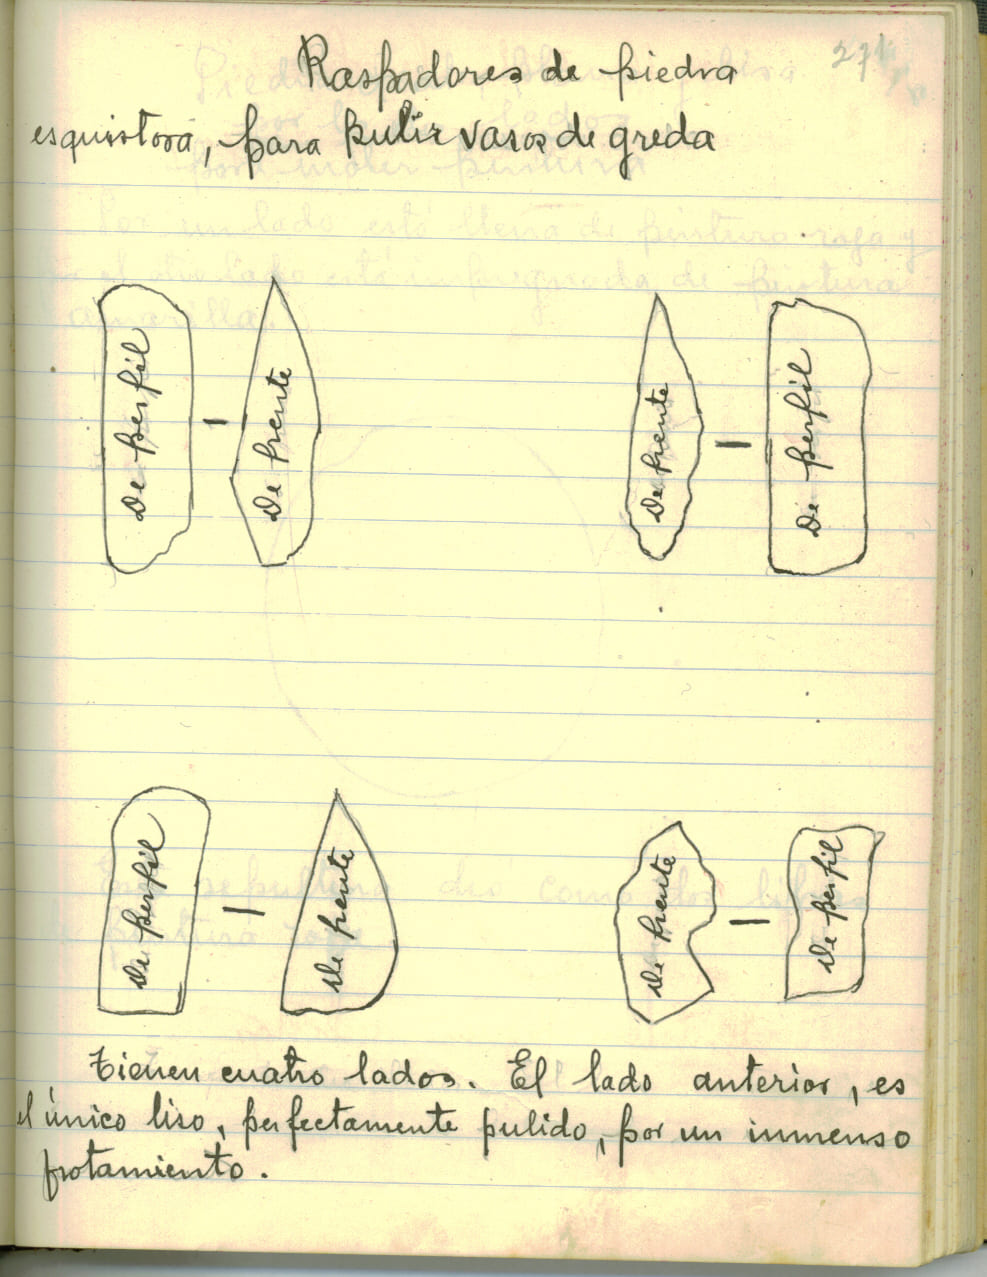 271
Raspadores de piedra
esquistosa, para pulir vasos de greda
De perfil
De frente
De frente
De perfil
De perfil
De frente
De frente
De perfil
Tienen cuatro lados. El lado anterior, es
el único liso, perfectamente pulido, por un inmenso
frotamiento.